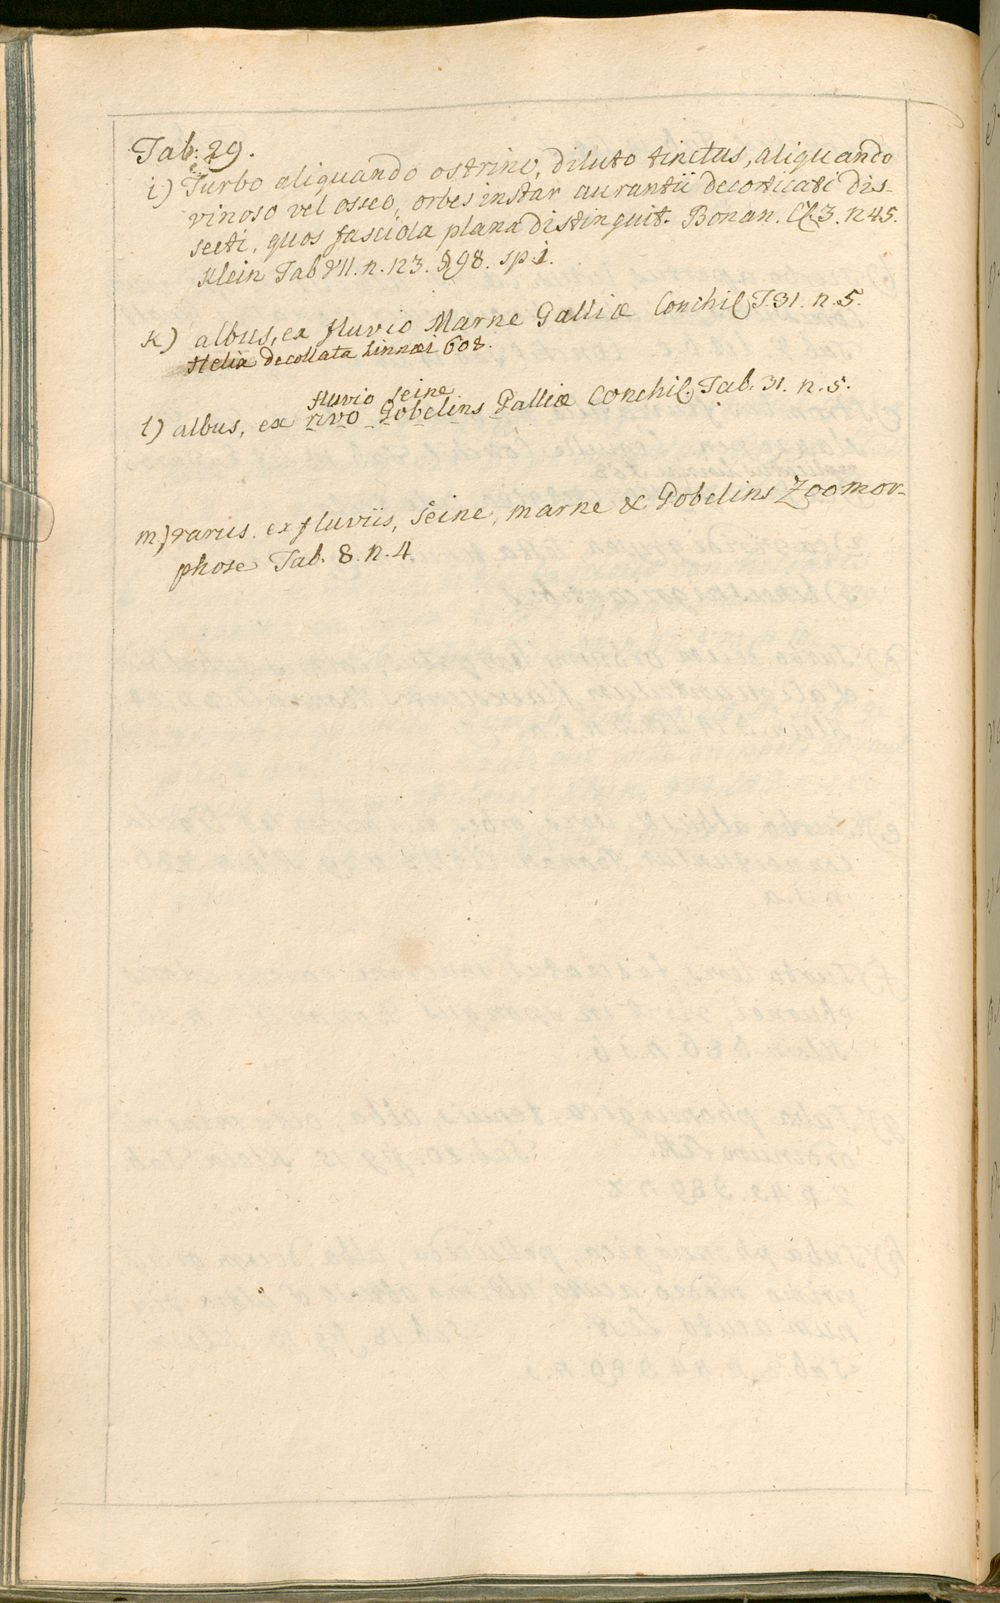 Tab: 29.
i) Turbo aliquando ostrino, diluto tinctus, aliquando
vinoso vel osseo, orbes instar aurantii decorticati dis-
secti, quos fasciola plana distinguit. Bonan. Cl. 3. n 45.
Klein Tab VII. n. 123. § 98. sp. 1.
k) albus, ex fluvio Marne Galliæ Conchil T. 31. n. 5.
Helix decollata Linnæi 608.
fluvio Seine
l) albus, ex rivo Gobelins Galliæ Conchil. Tab. 31. n. 5.
m) rarus. ex fluviis, Seine, marne & Gobelins Zoomor-
phose Tab. 8. n. 4